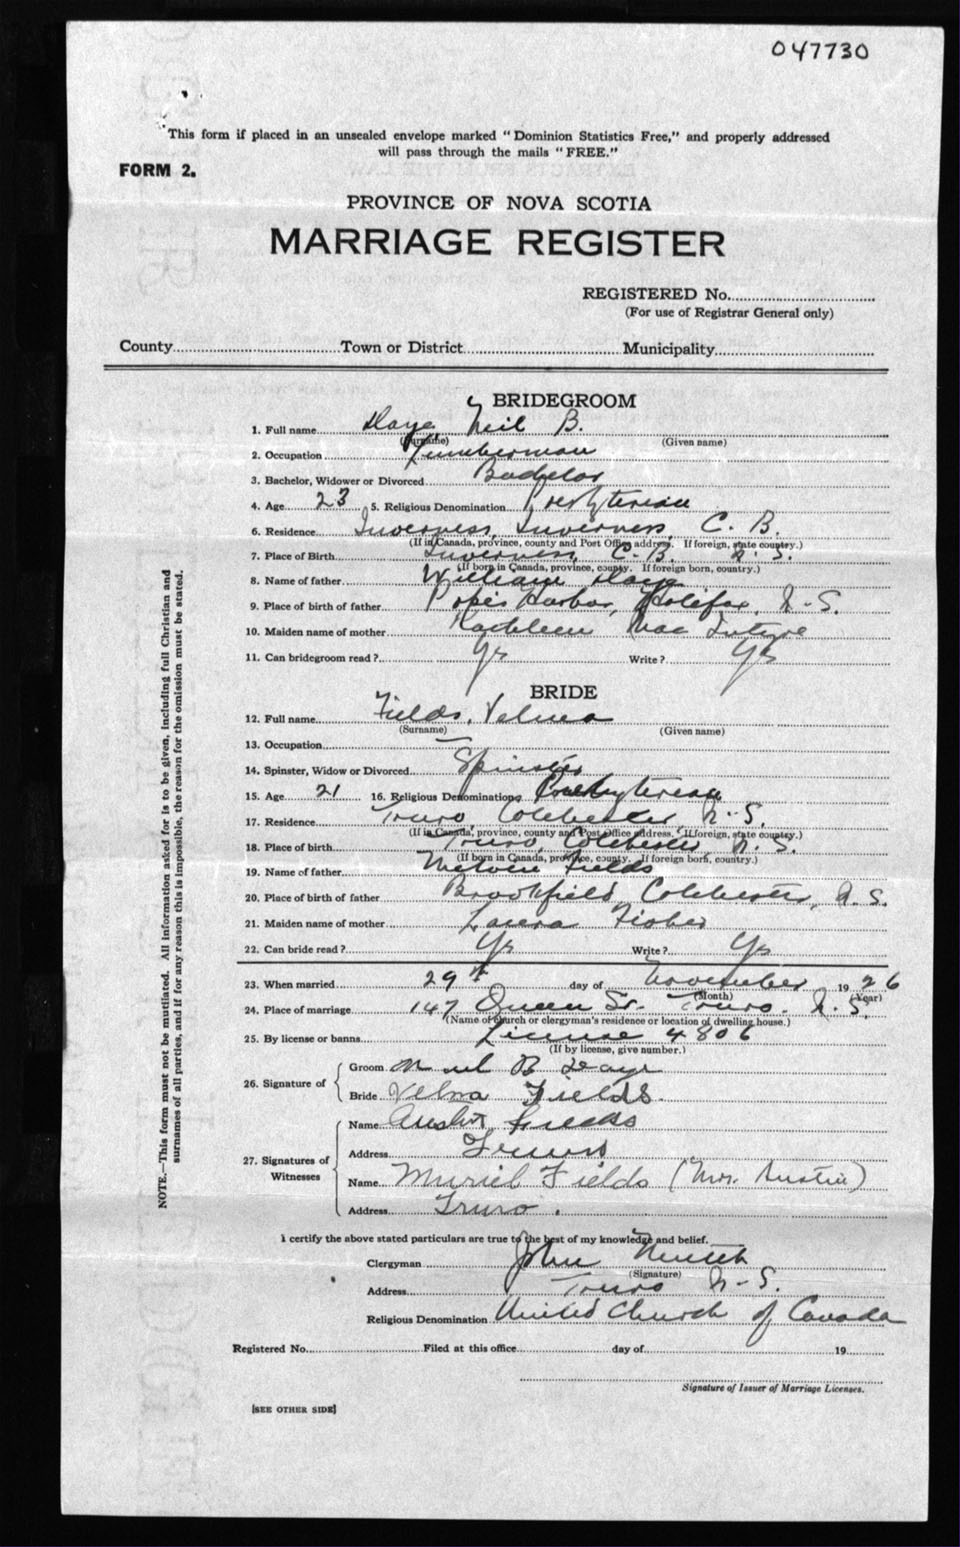 047730
This form if placed in an unsealed envelope marked "Dominion Statistics Free," and properly addressed
will pass through the mails "FREE."
FORM 2.
PROVINCE OF NOVA SCOTIA
MARRIAGE REGISTER
REGISTERED No.
(For use of Registrar General only)
County Town or District Municipality
BRIDEGROOM
1. Full name Neil B.
(Surname) (Given name)
2. Occupation Lumberman
3. Bachelor, Widower or Divorced Bachelor
4. Age 23 5. Religious Denomination Presbyterian
6. Residence Inverness, Inverness, C. B.
(If in Canada, province, county and Post Office address. If foreign, state country.)
7. Place of Birth Inverness, C. B. N. S.
(If born in Canada, province, county. If foreign born, country.)
8. Name of father William
9. Place of birth of father Pope's Harbor, Halifax, N-S.
10. Maiden name of mother Kathleen Mac
11. Can bridegroom read? Yes Write? Yes
BRIDE
12. Full name Fields, Velma
(Surname) (Given name)
13. Occupation
14. Spinster, Widow or Divorced Spinster
15. Age 21 16. Religious Denomination Presbyterian
17. Residence Truro, Colchester, N-S.
(If in Canada, province, county and Post Office address. If foreign, state country.)
18. Place of birth Truro, Colchester N. S.
(If born in Canada, province, county. If foreign born, country.)
19. Name of father Fields
20. Place of birth of father Brookfield Colchester, N. S.
21. Maiden name of mother Laura Fisher
22. Can bride read? Yes Write? Yes
23. When married 29th day of November 1926
(Month) (Year)
24. Place of marriage 147 Queen St. Truro. N. S.
(Name of church or clergyman's residence or location of dwelling house.)
25. By license or banns License 4806
(If by license, give number.)
26. Signature of
Groom Neil B
Bride Velma Fields.
27. Signatures of Witnesses
Name Fields
Address Truro
Name Muriel Fields (Mrs. Austin)
Address Truro.
I certify the above stated particulars are true to the best of my knowledge and belief.
Clergyman John
(Signature)
Address Truro N-S.
Religious Denomination United Church of Canada
Registered No. Filed at this office day of 19
Signature of Issuer of Marriage Licenses.
[SEE OTHER SIDE]
NOTE.—This form must not be mutilated. All information asked for is to be given, including full Christian and
surnames of all parties, and if for any reason this is impossible, the reason for the omission must be stated.